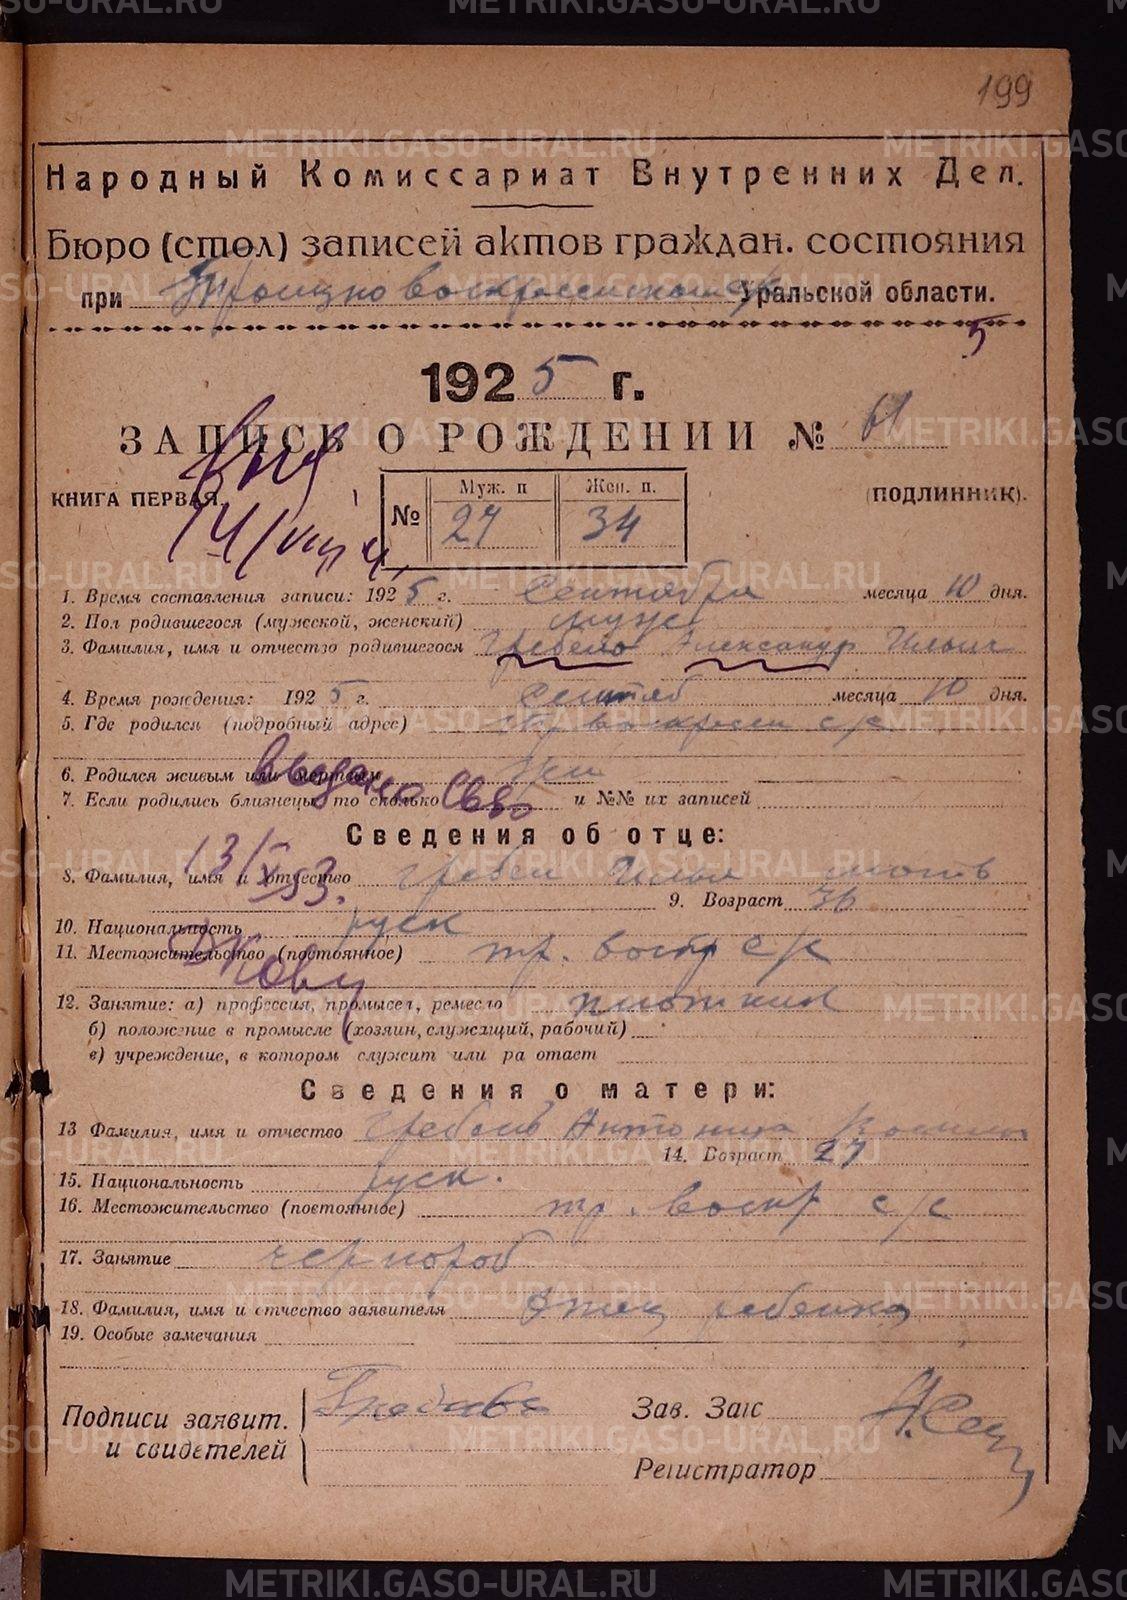 199
Народный Комиссариат Внутренних Дел.
Бюро (стол) записей актов граждан. состояния
при Троицко Воскресенском с/с Уральской области.
5
1925 г.
ЗАПИСЬ О РОЖДЕНИИ № 61
КНИГА ПЕРВАЯ. (ПОДЛИННИК).
№ Муж. п Жен. п.
27 34
1. Время составления записи: 1925 г. Сентября месяца 10 дня.
2. Пол родившегося (мужской, женский) муж
3. Фамилия, имя и отчество родившегося Александр Ильич
4. Время рождения: 1925 г. Сентяб месяца 10 дня.
5. Где родился (подробный адрес) тр воскресен с/с
6. Родился живым или мертвым жи
7. Если родились близнецы, то сколько и №№ их записей
выдано Св во
Сведения об отце:
13/X 53.
8. Фамилия, имя и отчество Гребен Илья
9. Возраст 36
10. Национальность руск
11. Местожительство (постоянное) тр. воскр с/с
12. Занятие: а) профессия, промысел, ремесло плотник
б) положение в промысле (хозяин, служащий, рабочий)
в) учреждение, в котором служит или работает
Сведения о матери:
13 Фамилия, имя и отчество Антонина
14. Возраст 27
15. Национальность руск.
16. Местожительство (постоянное) тр. воскр с/с
17. Занятие чернораб
18. Фамилия, имя и отчество заявителя Отец ребенка
19. Особые замечания
Подписи заявит.
и свидетелей
Зав. Загс
Регистратор
METRIKI.GASO-URAL.RU